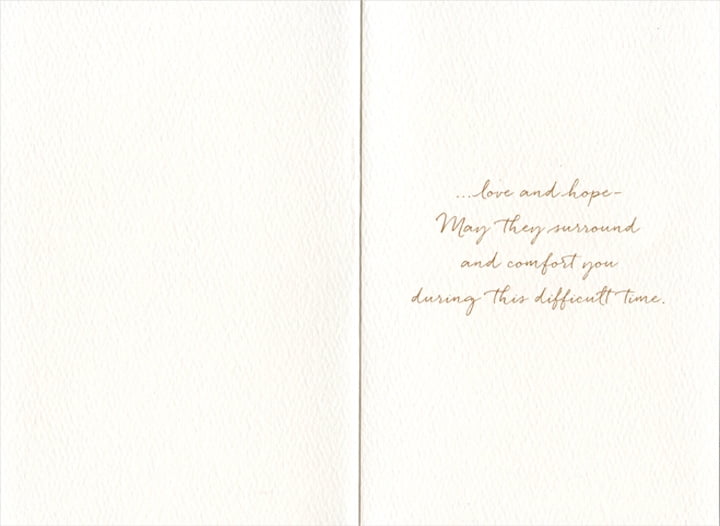 ...love and hope–
May they surround
and comfort you
during this difficult time.